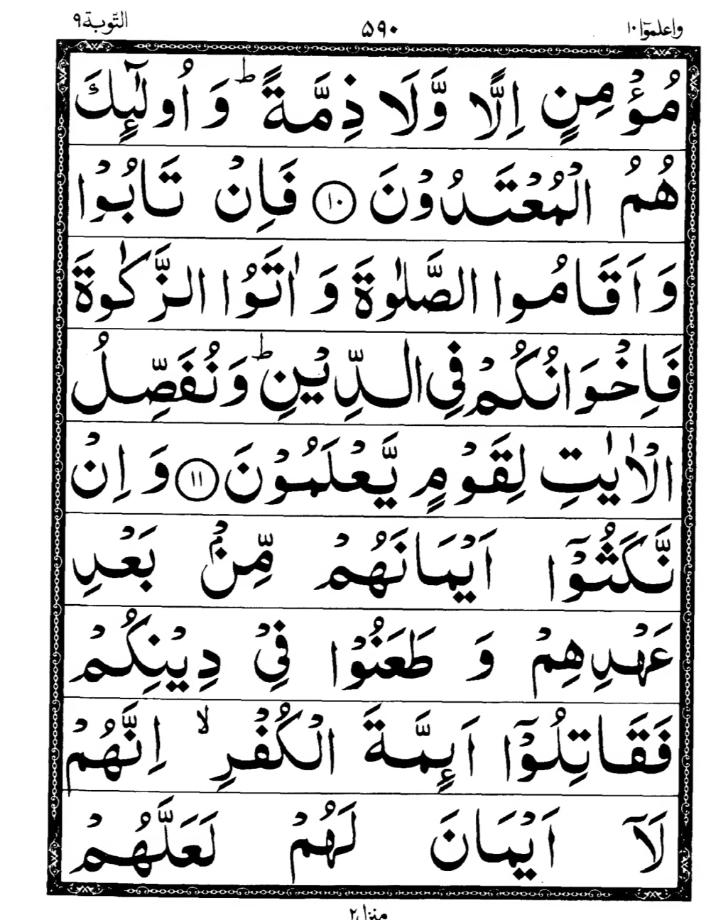 واعلموٓا ١٠ ۵۹۰ التّوبة ٩
مُؤْمِنٍ اِلًّا وَّلَا ذِمَّةً ؕ وَ اُولٰٓئِكَ
هُمُ الْمُعْتَدُوْنَ ۝۱۰ فَاِنْ تَابُوْا
وَ اَقَامُوا الصَّلٰوةَ وَ اٰتَوُا الزَّكٰوةَ
فَاِخْوَانُكُمْ فِی الدِّيْنِ ؕ وَ نُفَصِّلُ
الْاٰيٰتِ لِقَوْمٍ يَّعْلَمُوْنَ ۝۱۱ وَ اِنْ
نَّكَثُوْۤا اَيْمَانَهُمْ مِّنْۢ بَعْدِ
عَهْدِهِمْ وَ طَعَنُوْا فِیْ دِيْنِكُمْ
فَقَاتِلُوْۤا اَئِمَّةَ الْكُفْرِ ۙ اِنَّهُمْ
لَاۤ اَيْمَانَ لَهُمْ لَعَلَّهُمْ
منزل ۲